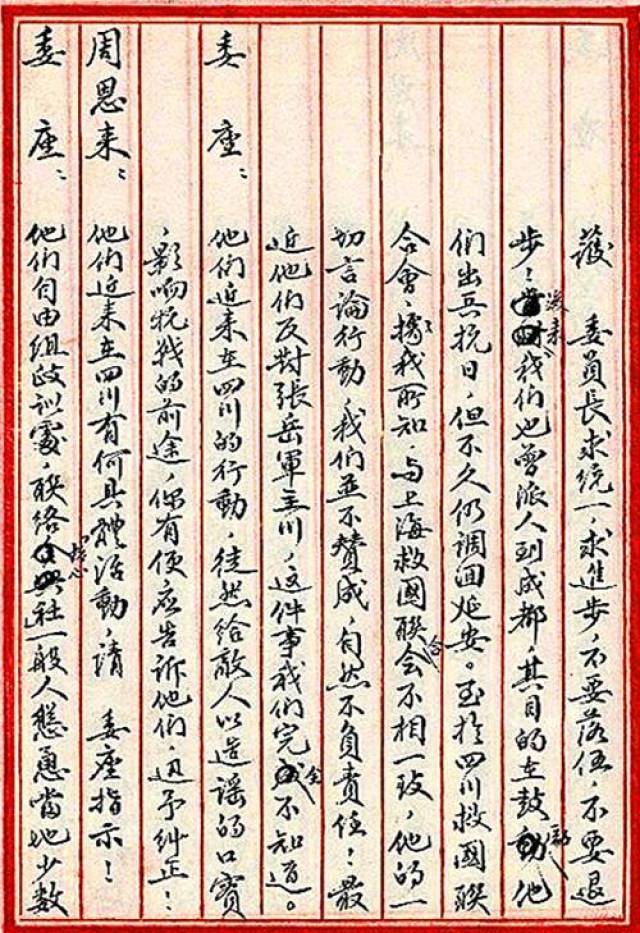 護　委員長求統一，求進步，不要落伍，不要退
步！後來我們也曾派人到成都，其目的在鼓勵他
們出兵抗日，但不久仍調回延安。至於四川救國聯
合會，據我所知，與上海救國聯合會不相一致，他的一
切言論行動，我們並不贊成，自然不負責任！最
近他們反對張岳軍主川，這件事我們完全不知道。
委座：他們近來在四川的行動，徒然給敵人以造謠的口實
，影响抗战的前途，你有便应告诉他们，迅予纠正！
周恩来：他们近来在四川有何具體活動，請　委座指示！
委座：他们自由組政训處，联络核心社一般人慫恿當地少數